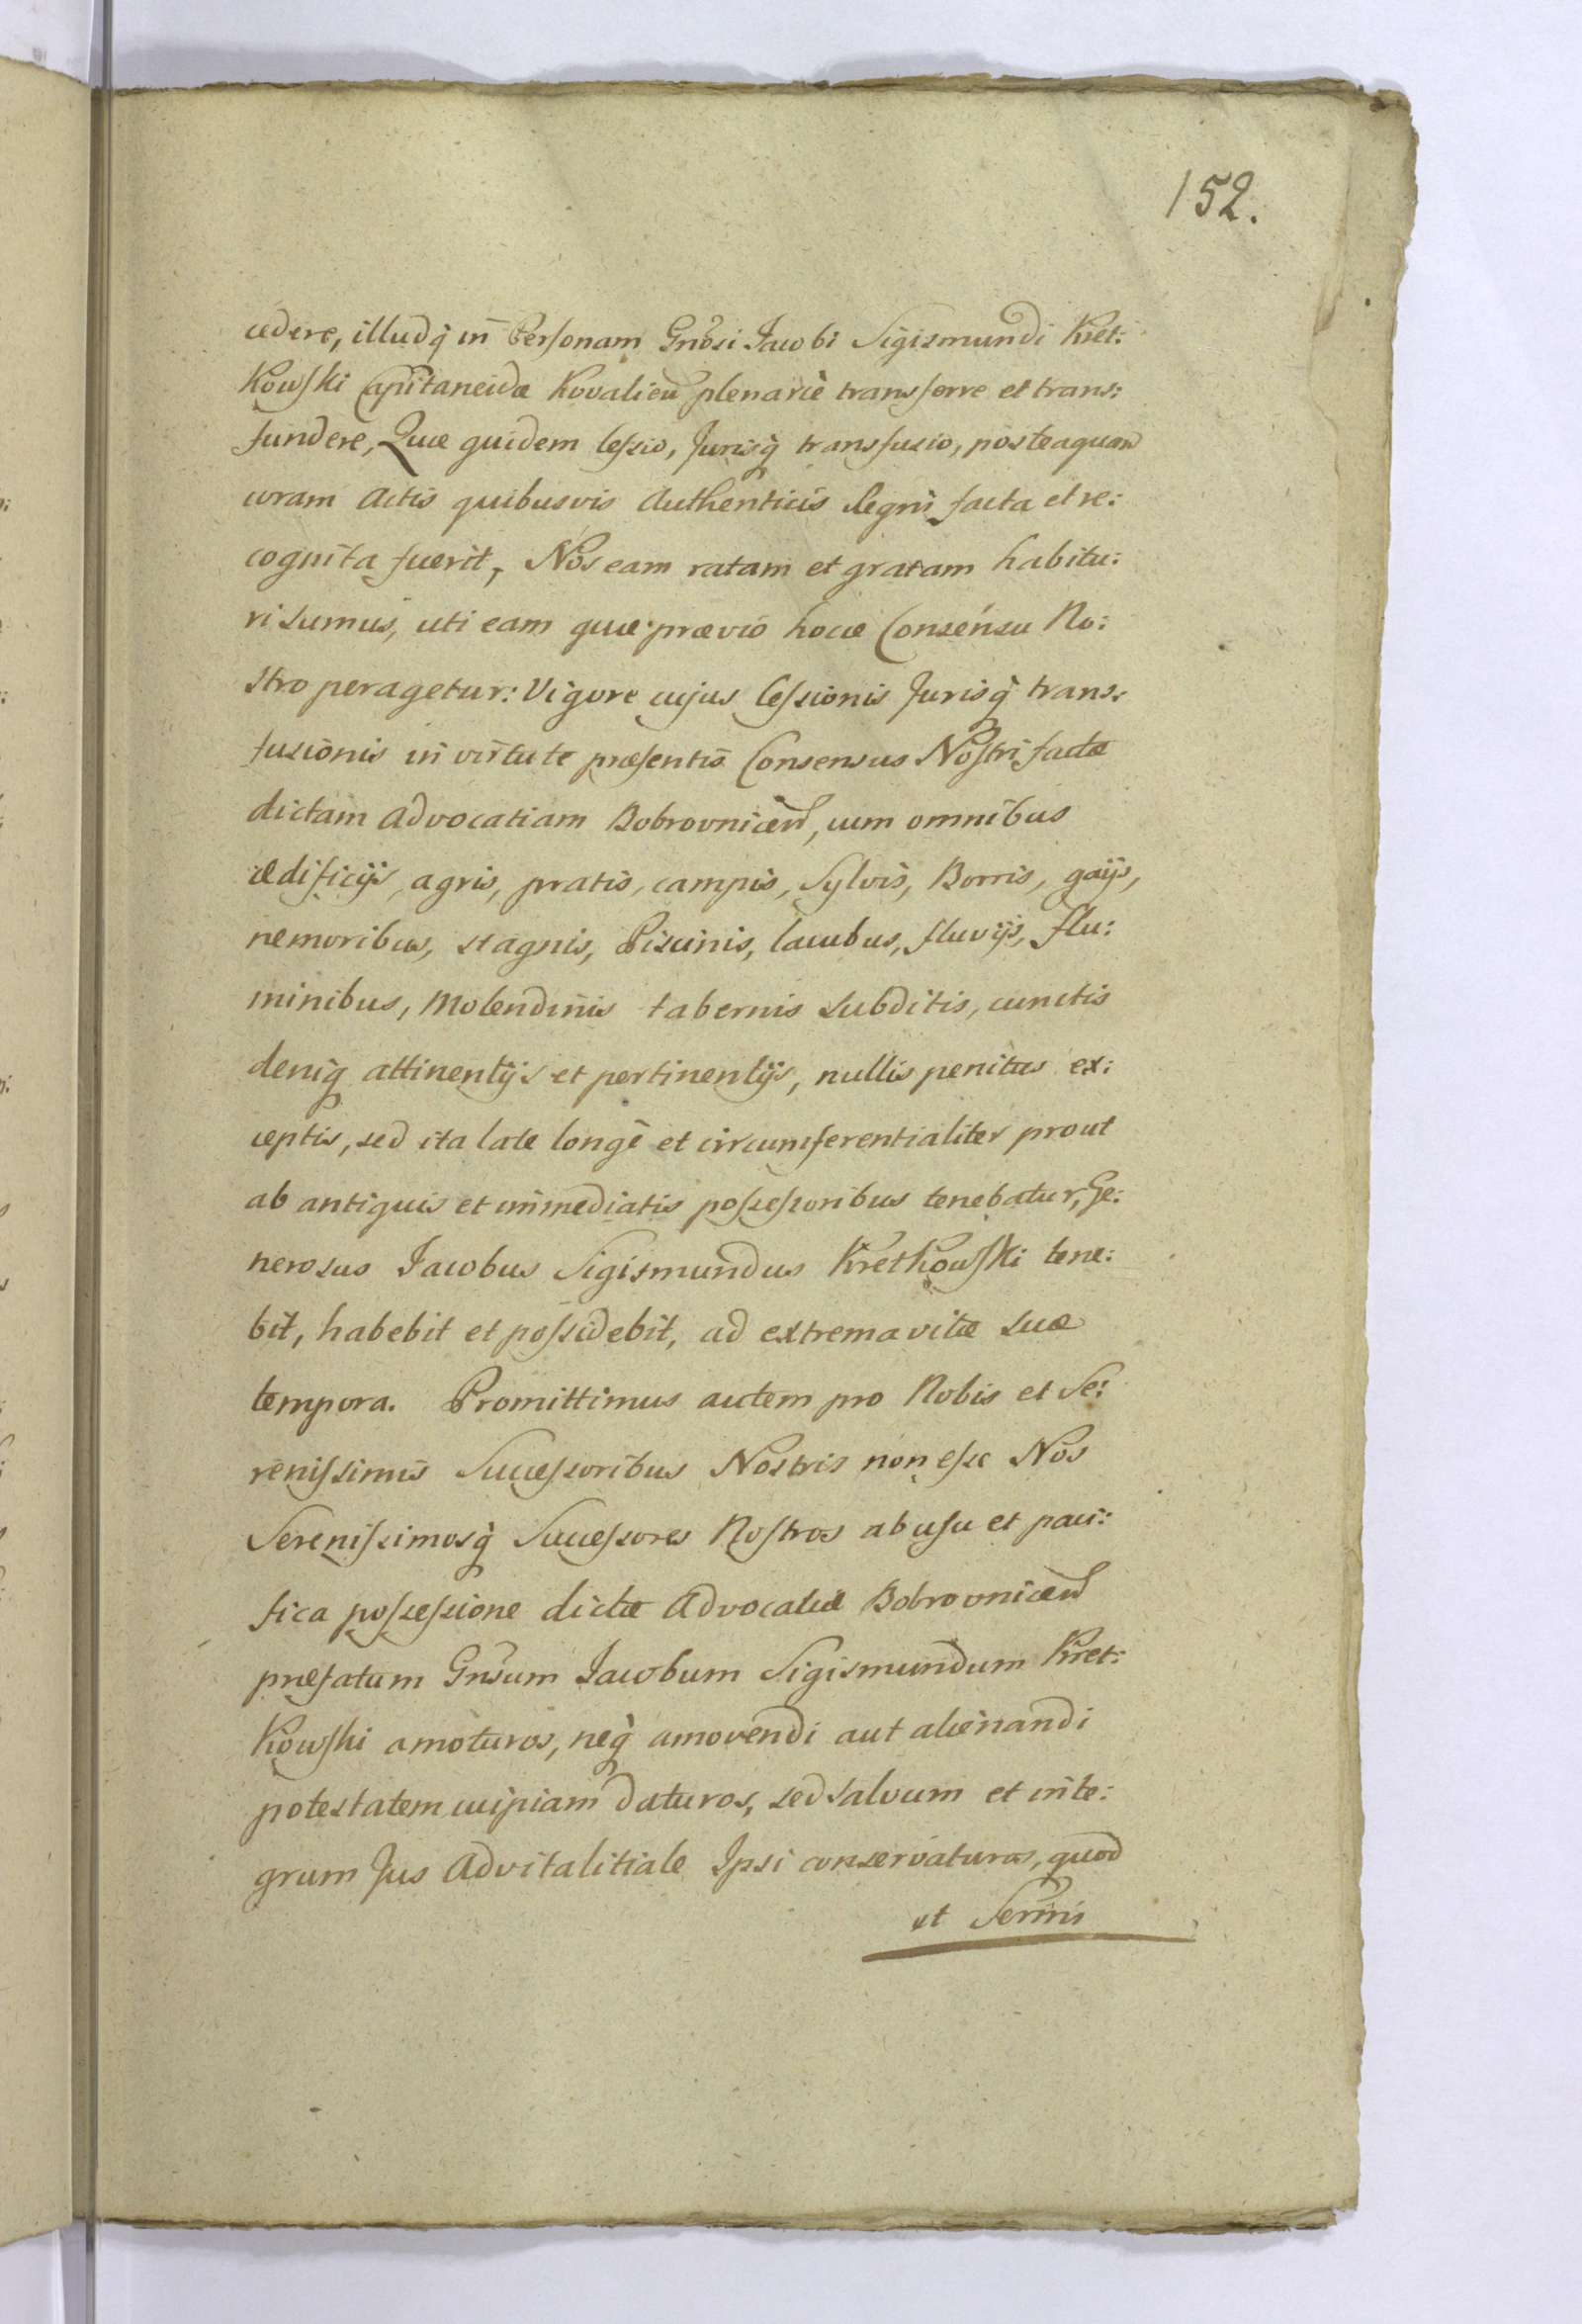 152.
cedere, illudq́ in Personam Gnôsi Jacobi Sigismundi Kret:
Kowski Capitaneidæ Kovalien plenariè transferre et trans:
fundere, Quæ quidem Cessio, Jurisq́ transfusio, posteaquam
coram Actis quibusvis Authenticis Regni facta et re:
cognita fuerit, Nos eam ratam et gratam habitu:
ri sumus, uti eam quæ prævio hocce Consensu No:
stro peragetur: Vigore cujus Cessionis Jurisq́ trans:
fusionis in virtute præsentis Consensus Nostri factæ
dictam Advocatiam Bobrovnicen, cum omnibus
ædificijs, agris, pratis, campis, Sylvis, Borris, gaijs,
nemoribus, stagnis, Piscinis, lacubus, fluvijs, flu:
minibus, Molendinis tabernis subditis, cunctis
deniq́ attinentijs et pertinentijs, nullis penitus ex:
ceptis, sed ita late longè et circumferentialiter prout
ab antiquis et immediatis possessoribus tenebatur, Ge:
nerosus Jacobus Sigismundus Kretkowski tene:
bit, habebit et possidebit, ad extrema vitæ suæ
tempora. Promittimus autem pro Nobis et Se:
renissimis Successoribus Nostris non esse Nos
Serenissimosq́ Successores Nostros ab usu et paci:
fica possessione dictæ Advocatiæ Bobrovnicen
præfatum Gnsum Jacobum Sigismundum Kret:
Kowski amoturos, neq́ amovendi aut alienandi
potestatem cuipiam daturos, sed salvum et inte:
grum Jus Advitalitiale Ipsi conservaturos, quod
et Sermi